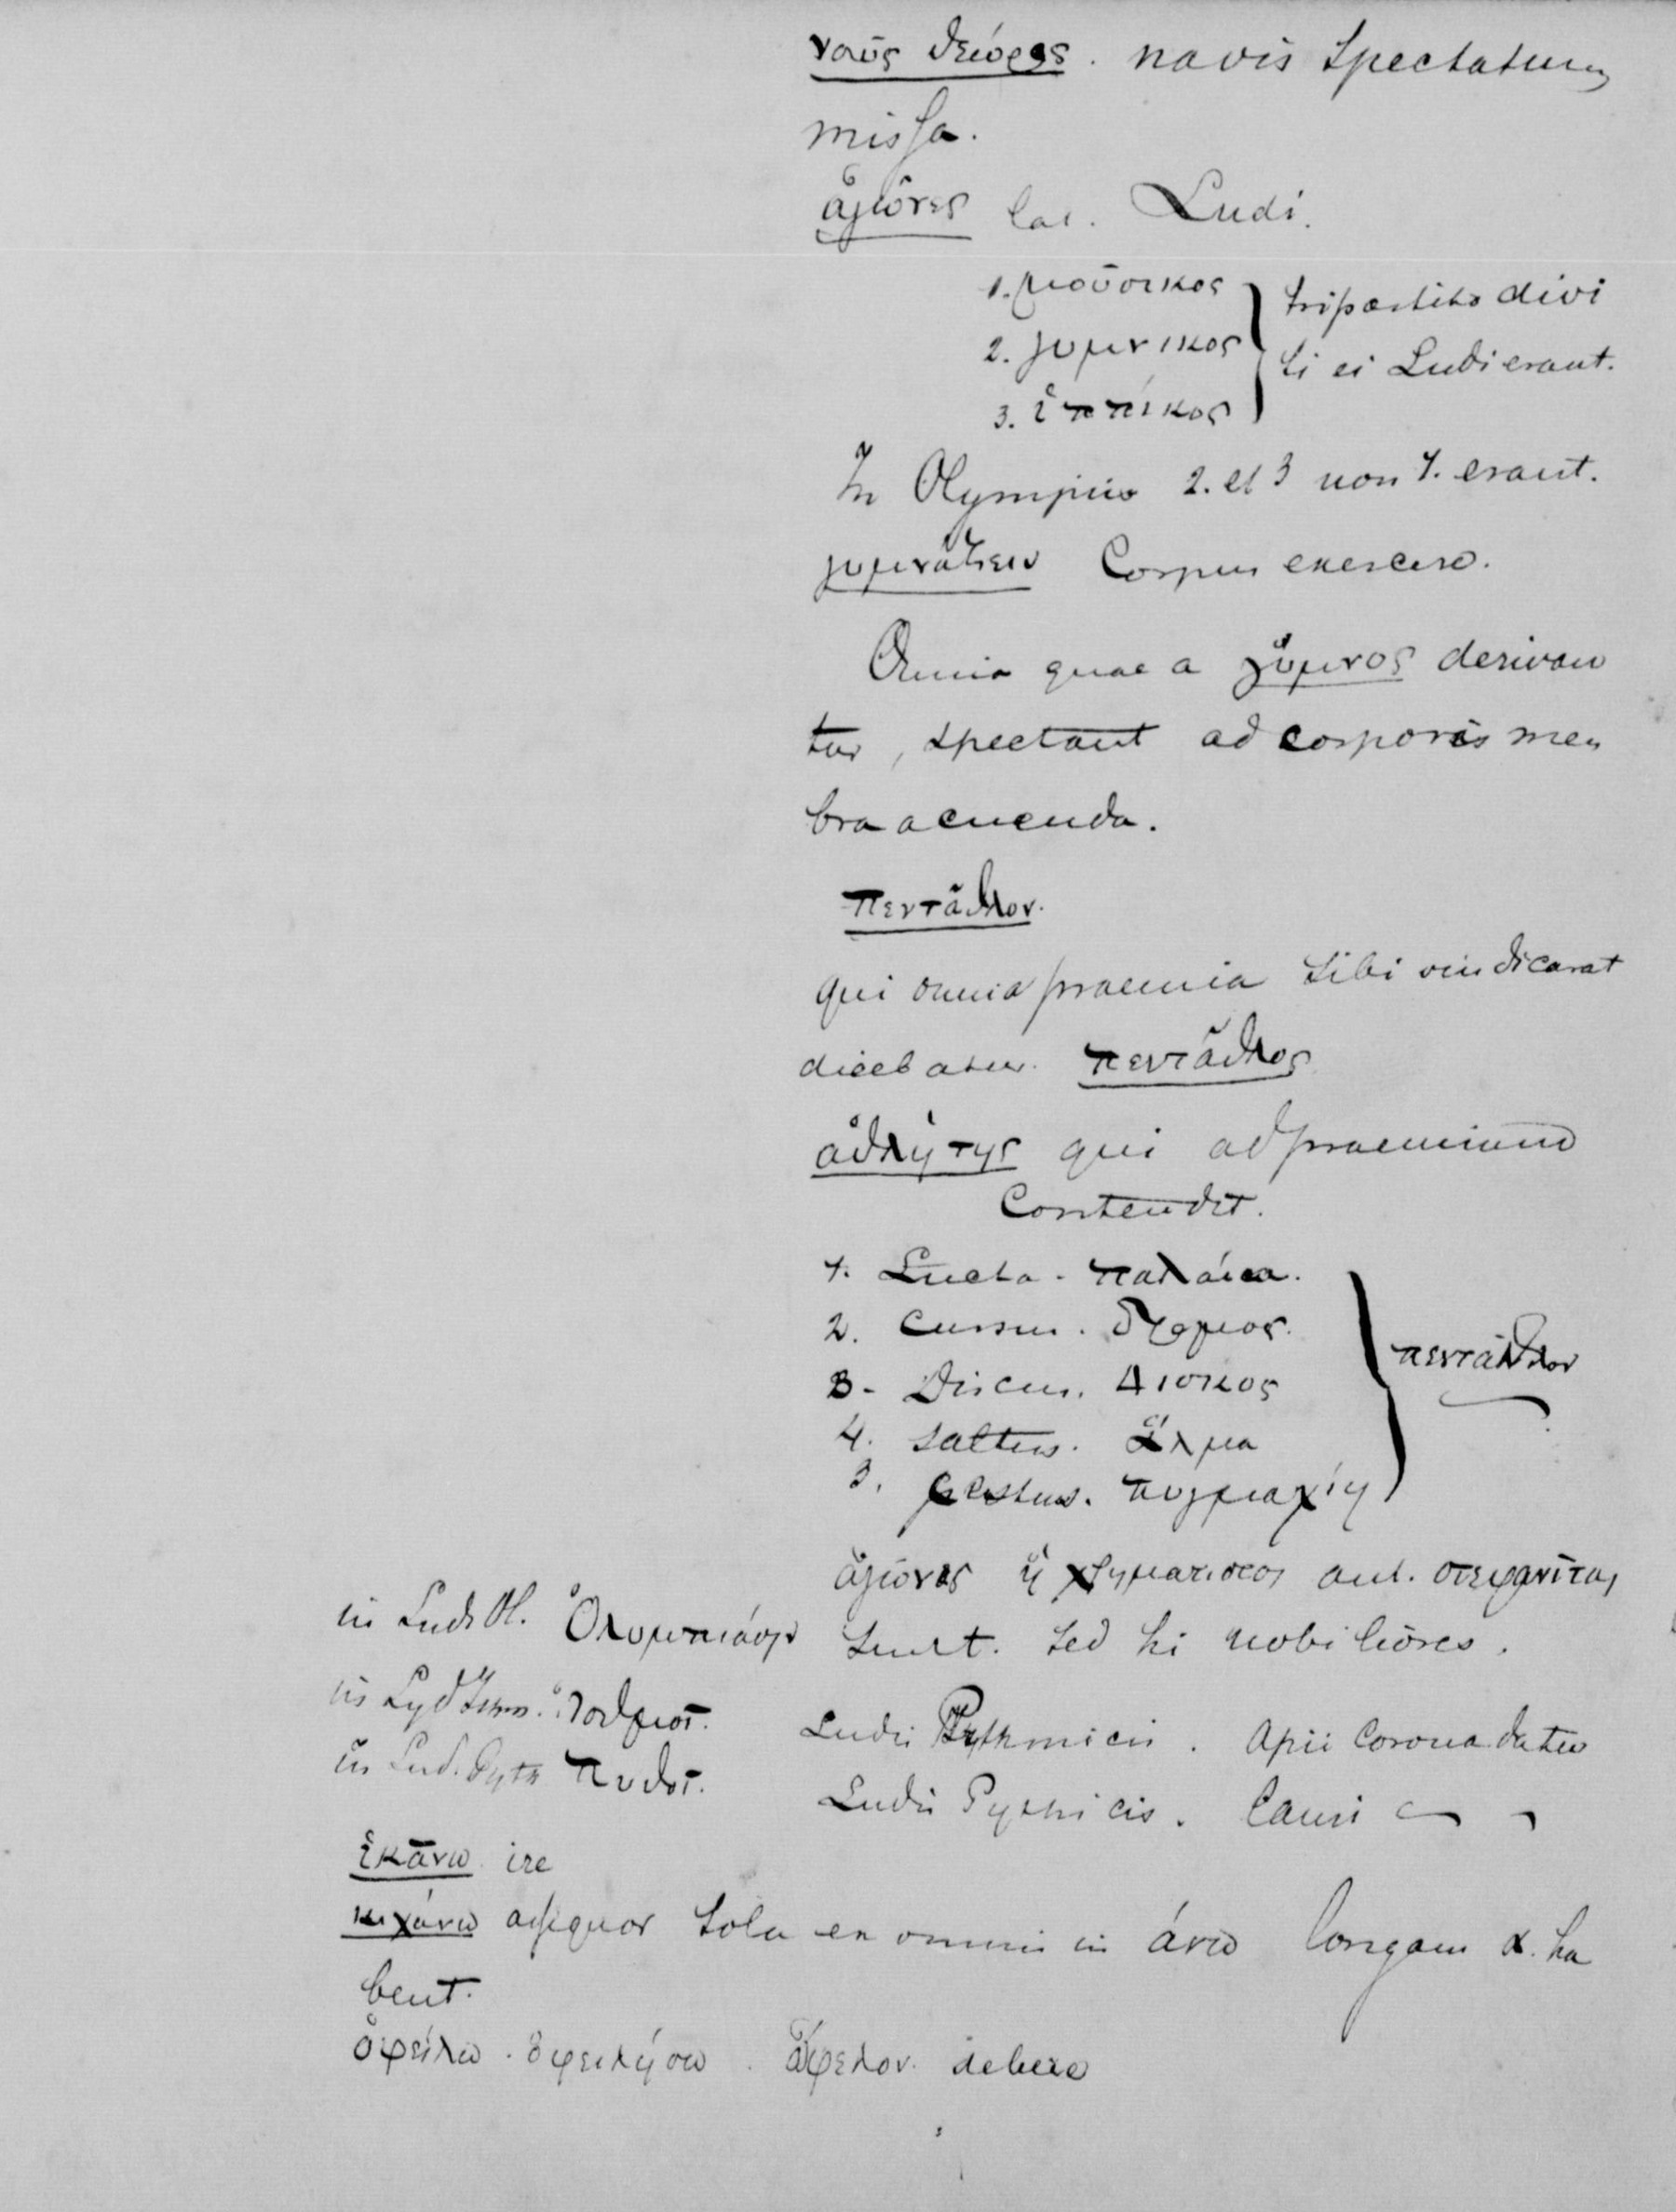 ναῦς θεώρος. navis spectatum
missa.
ἀγῶνες lat. Ludi.
1. μούσικος
2. γυμνικος
3. ἱππίκος
tripartito divi
si ei Ludi erant.
In Olympiis 2. et 3 non 1. erant.
γυμνάζειν Corpus exercere.
Omnia quae a γύμνος derivan
tur, spectant ad corporis mem
bra acuenda.
πεντάθλον.
qui omnia praemia sibi vindicarat
dicebatur. πεντάθλος
ἀθλήτης qui ad praemium
contendit.
1. Lucta. παλαία.
2. Cursus. δρομος.
3. Discus. Δισκος
4. saltus. ἅλμα
5. Cestus. πυγμαχίη
πεντάθλον
ἀγῶνες ἢ aut. στεφανῖται
sunt. sed hi nobiliores.
in Lud. Ol. Ὀλυμπιάσιν
in Lud. Isthm. Ἰσθμοῖ.
in Lud. Pyth Πυθοῖ.
Ludis . Apii Corona datur
Ludis Pythicis. Lauri
ἱκάνω ire
κιχάνω assequor sola ex omnin in άνω longam α. ha
bent.
ὀφείλω. ὀφειλήσω. ὤφελον. debere